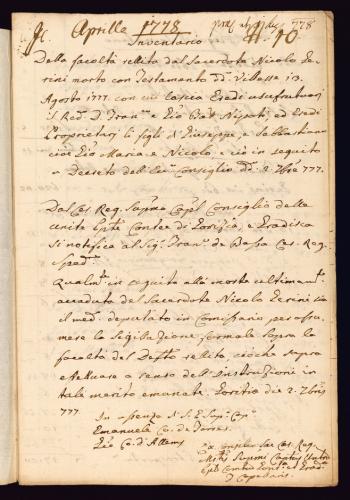 Aprille 1778
N. 40
Inventario
Della facoltà relitta dal Sacerdote Nicolò Ze-
rini morto con Testamento dd. Villesse 13.
Agosto 1777. con cui lascia Eredi usufruttuarj
i Red. d. Fran.co e Gio Batt. Nipoti, ed Eredi
Proprietarj li figli di Giuseppe, e Sebbastiano
cioè Gio Maria e Nicolò, e ciò in seguito
a Decreto dell' Consiglio dd. 2. 7bre 777.
Dal Ces. Reg. Sup.mo Cap.l Consiglio delle
unite Contee di Gorizia, e Gradisca
si notifica al Sig. Fran.co de Bassa Ces. Reg.
Sped.
Qualm.te in seguito alla morte ultimam.te
accaduta del Sacerdote Nicolò Zerini sia
il med. deputato in Comissario per assu-
mere la Sigillazione formale sopra la
facoltà del Def.to relitta, cioche saprà
effettuare a senso dell' Instruzioni in
tale merito emanate. Gorizia die 2. 7bris
777.
In S. E. Sup. Cap.
Emanuele Co. de Torres.
Gio Co. d'Attems
Ex Consilio Sac. Ces. Reg.
Supremi
Comit.